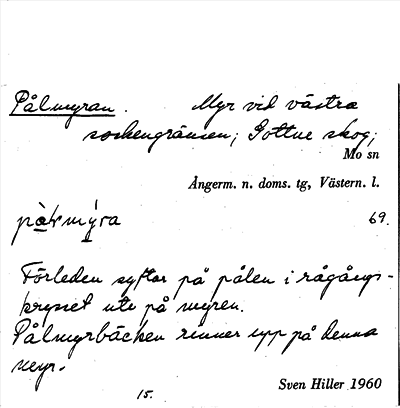 Pålmyran. Myr vid västra
sockengränsen; Gottne skog;
Mo sn
Ångerm. n. doms. tg, Västern. l.
69.
Förleden syftar på pålen i rågångs-
krysset ute på myren.
Pålmyrbäcken rinner upp på denna
myr.
15.
Sven Hiller 1960